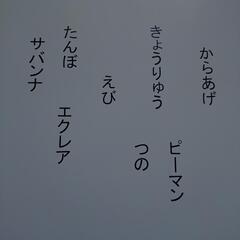 からあげ
ピーマン
きょうりゅう
つの
えび
たんぼ
エクレア
サバンナ